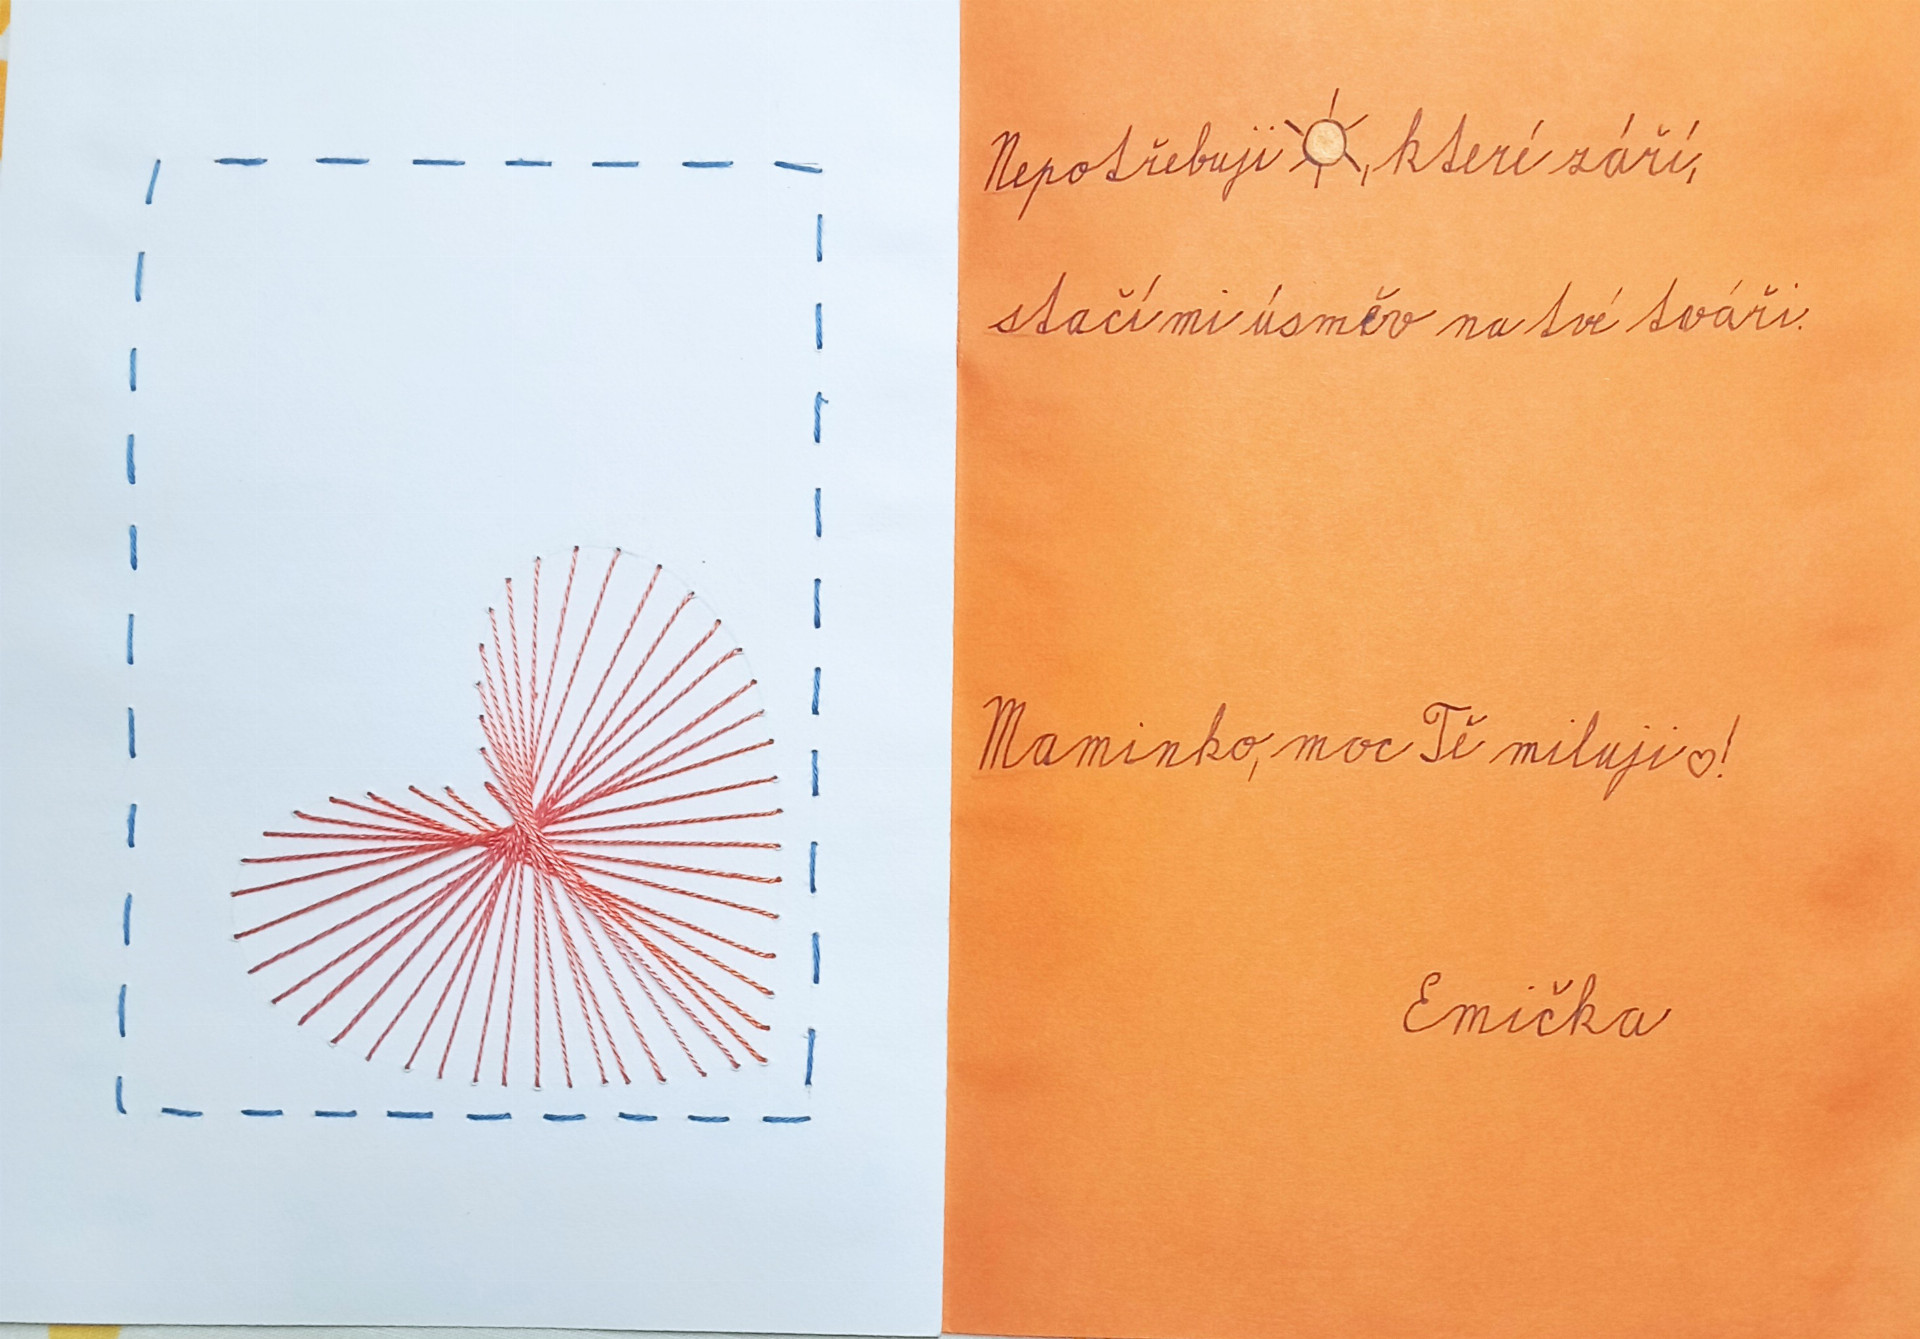 Nepotřebuji ☀, kterí září,
stačí mi úsměv na tvé tváři.
Maminko, moc Tě miluji ♡!
Emička